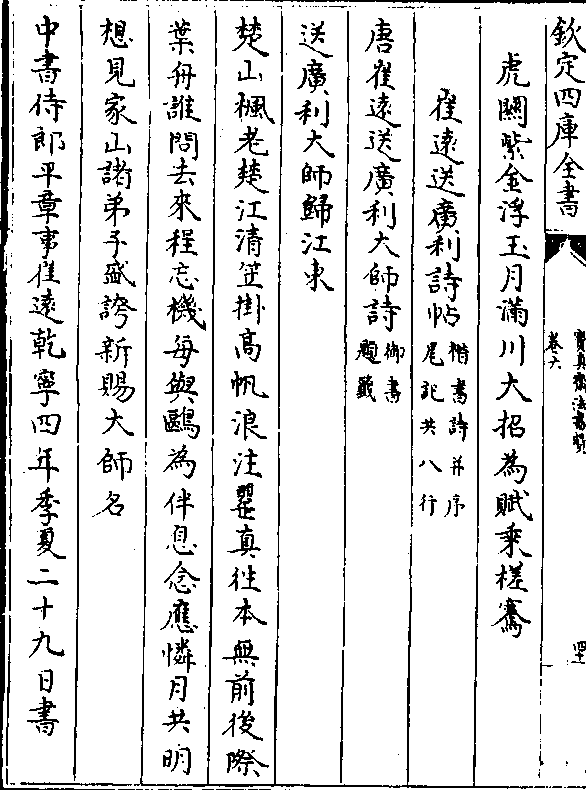 欽定四庫全書
寶真齋法書贊
卷六
虎闕紫金浮玉月滿川大招為賦乘槎騫
崔遠送廣利詩帖
楷書詩并序
尾記共八行
唐崔遠送廣利大師詩
御書
題籤
送廣利大師歸江東
楚山楓老楚江清笠掛高帆浪注罌真徃本無前後際
葉舟誰問去來程忘機每與鷗為伴息念應憐月共明
想見家山諸弟子盛誇新賜大師名
中書侍郎平章事崔遠乾寧四年季夏二十九日書